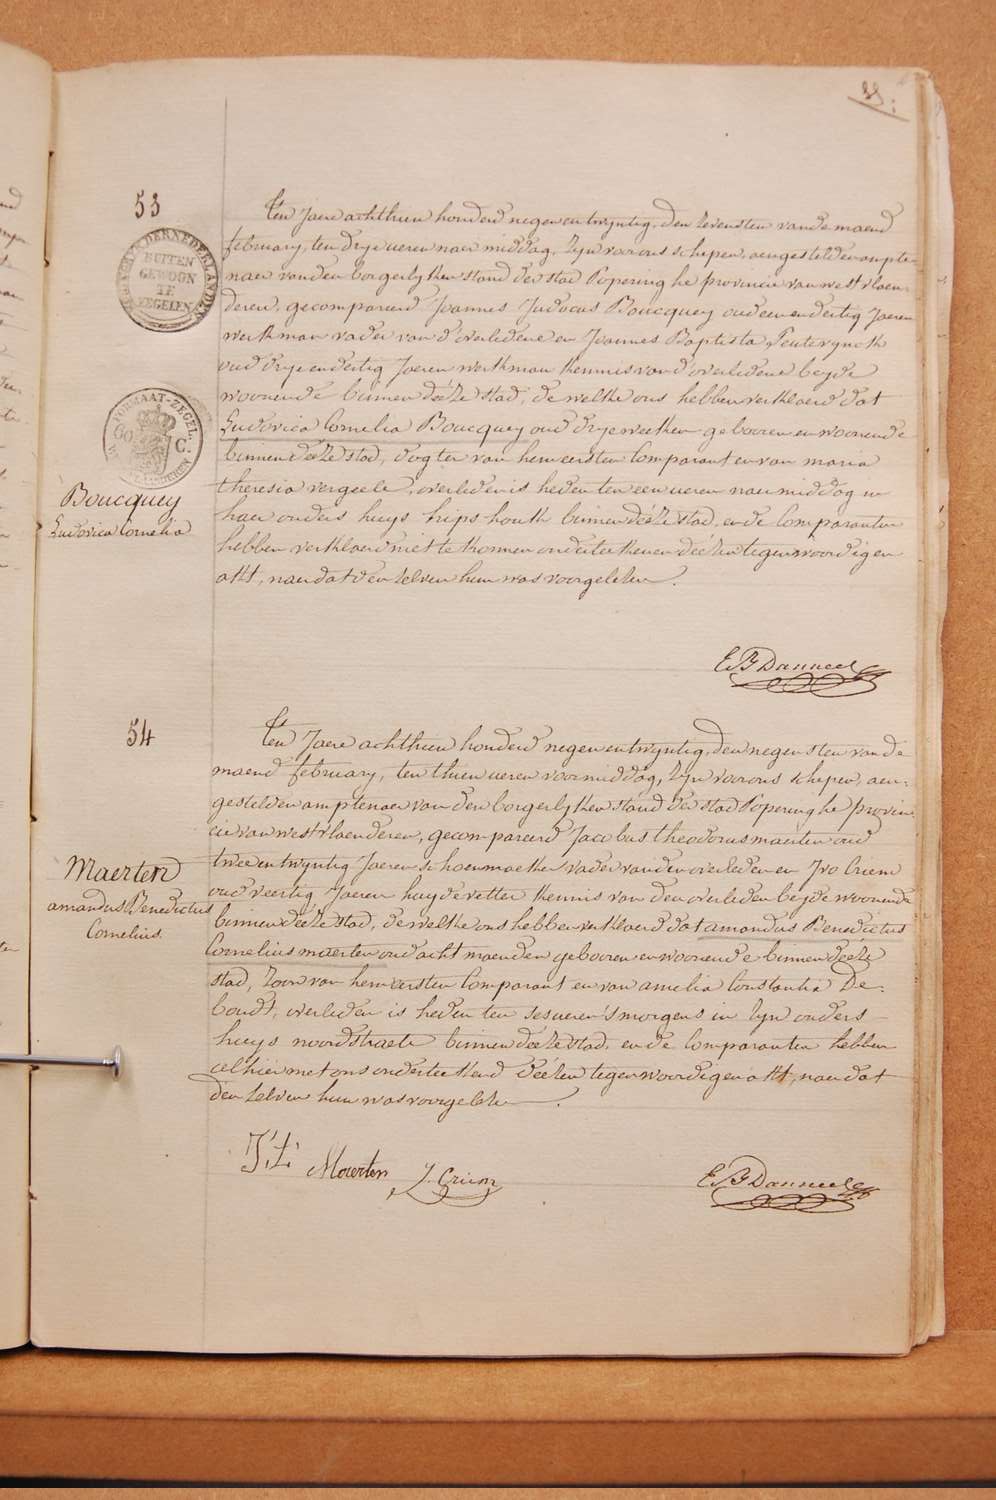 53
Ten Jaere achthien honderd negen en twyntig, den zevensten van de maend
february, ten drye ueren naer middag, zyn voor ons schepen, aengestelden ampte-
naer van den borgerlyken stand der stad Poperinghe provincie van westvlaen-
deren, gecompareerd Joannes Judocus Boucquey oud een en dertig Jaeren
werkman vader van d'overledene en Joannes Baptista Peuterynck
oud drye en dertig Jaeren werkman kennis van d'overledene beyde
woonende binnen deéze stad, de welke ons hebben verklaerd dat
Ludovica Cornelia Boucquey oud drye weeken gebooren en woonende
binnen deéze stad, dogter van hem eersten Comparant en van maria
theresia vergeele, overleden is heden ten een ueren naer middag in
haer ouders huys hipshouk binnen deéze stad, en de Comparanten
hebben verklaerd niet te konnen onderteekenen deézen tegenwoordigen
akt, naer dat den zelven hun was voorgelezen.
BUITEN
GEWOON
TE
ZEGELEN
FORMAAT-ZEGEL
60 C.
Boucquey
Ludovica Cornelia
E B Danneel
54
Ten Jaere achthien honderd negen en twyntig, den negensten van de
maend february, ten thien ueren voormiddag, zyn voor ons schepen, aen-
gestelden amptenaer van den borgerlyken stand der stad Poperinghe provin-
cie van westvlaenderen, gecompareerd Jacobus theodorus maerten oud
twee en twyntig Jaeren schoenmaeker vader van den overleden en Ivo Criem
oud veertig Jaeren huydevetter kennis van den overleden beyde woonende
binnen deéze stad, de welke ons hebben verklaerd dat amandus Benedictus
Cornelius maerten oud acht maenden gebooren en woonende binnen deéze
stad, zoon van hem eersten Comparant en van amelia Constantia De-
boudt, overleden is heden ten ses ueren s'morgens in zyn ouders
huys noordstraete binnen deéze stad, en de Comparanten hebben
alhier met ons onderteekend deézen tegenwoordigen akt, naer dat
den zelven hun was voorgelezen.
Maerten
amandus Benedictus
Cornelius.
J. t. Maerten J. Criem E B Danneel